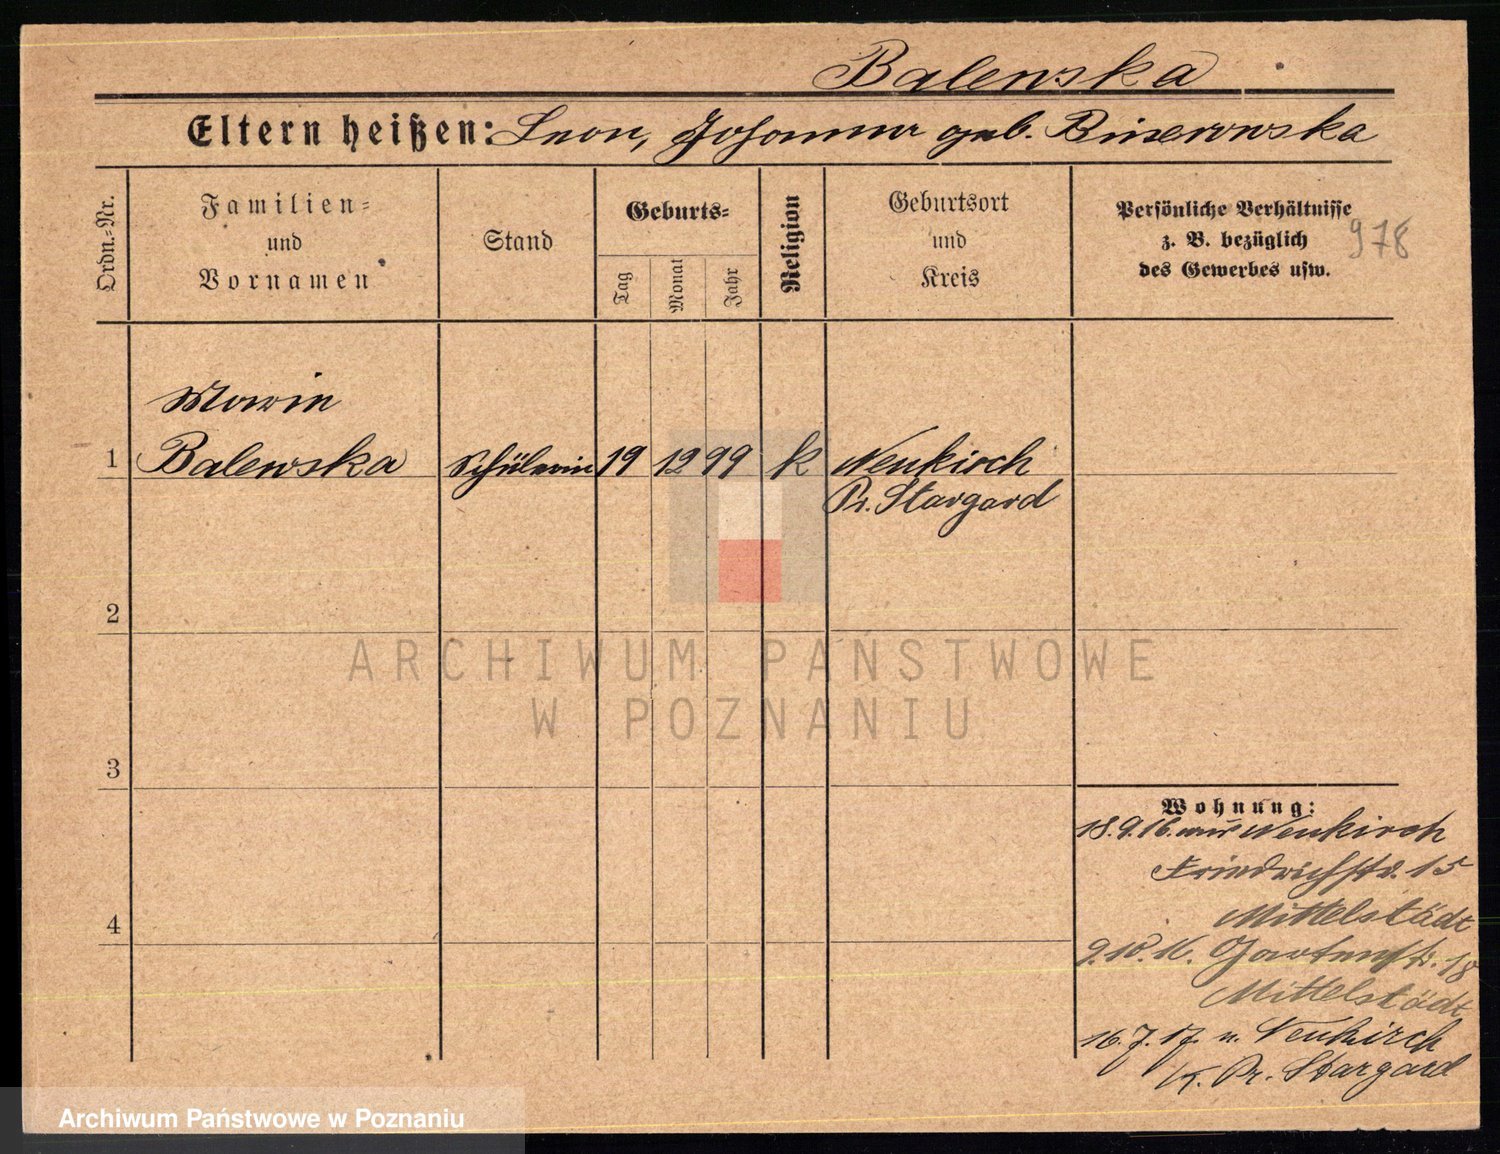 Balewska
Eltern heißen: Leon, Johanna geb. Binerowska
Ordn.-Nr.
Familien-
und
Vornamen
Stand
Geburts-
Tag
Monat
Jahr
Religion
Geburtsort
und
Kreis
Persönliche Verhältnisse
z. B. bezüglich
des Gewerbes usw.
978
Marie
1 Balewska Schülerin 19 12 99 k Neukirch
Pr. Stargard
2
3
4
Wohnung:
18.9.16. aus Neukirch
Friedrichstr. 15
Mittelstädt
9.10.16. Gartenstr. 18
Mittelstädt
16.7.17. n. Neukirch
K. Pr. Stargard
ARCHIWUM PAŃSTWOWE
W POZNANIU
Archiwum Państwowe w Poznaniu